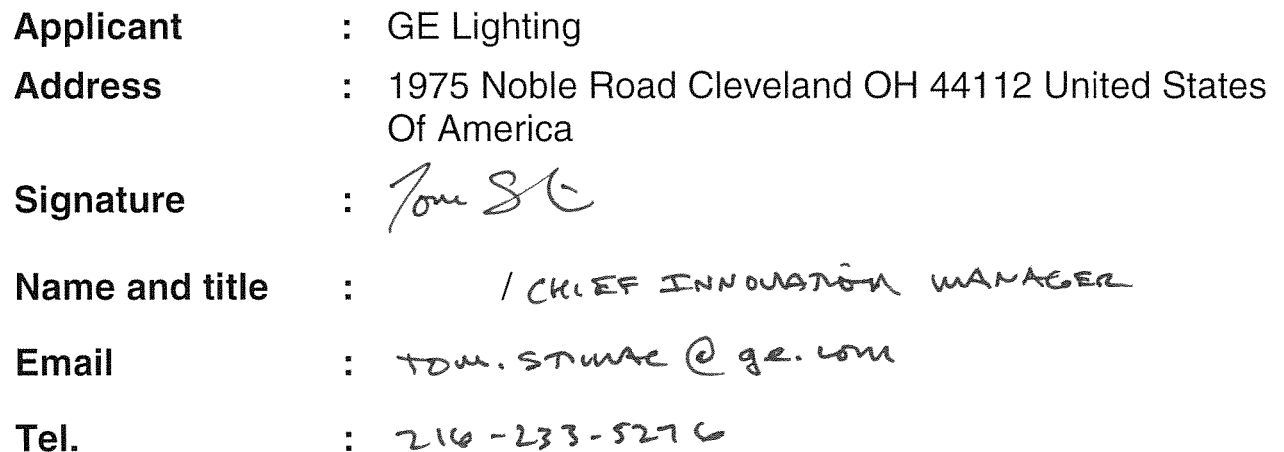 Applicant : GE Lighting
Address : 1975 Noble Road Cleveland OH 44112 United States
Of America
Signature : Tom St
Name and title : / CHIEF INNOVATION MANAGER
Email : tom.stimac@ge.com
Tel. : 216-233-5276